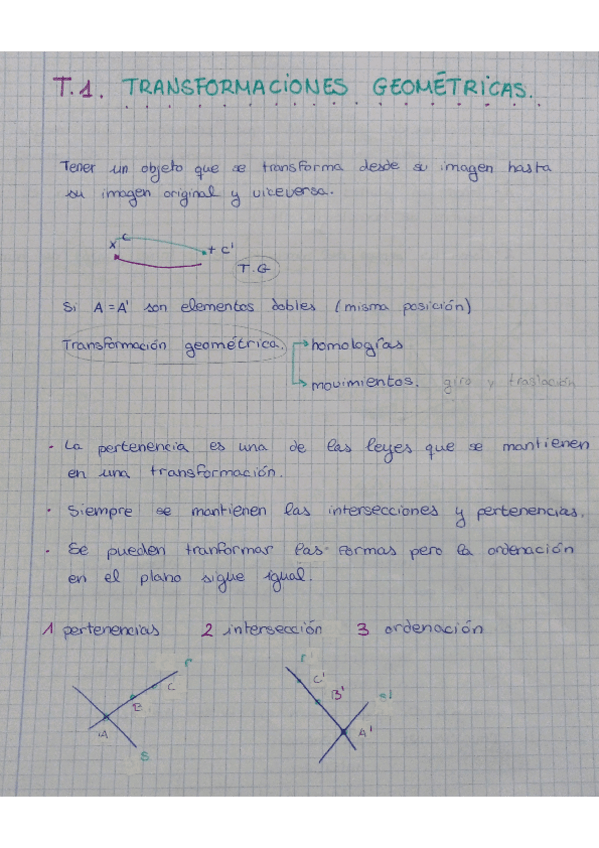 T.1. TRANSFORMACIONES GEOMÉTRICAS.
Tener un objeto que se transforma desde su imagen hasta
su imagen original y viceversa.
x C + C'
T.G
Si A = A' son elementos dobles (misma posición)
Transformación geométrica. homologías
movimientos. giro y traslación
· La pertenencia es una de las leyes que se mantienen
en una transformación.
· Siempre se mantienen las intersecciones y pertenencias.
· Se pueden tranformar las formas pero la ordenación
en el plano sigue igual.
1 pertenencias 2 intersección 3 ordenación
r r'
C C'
B B' s'
A A'
s